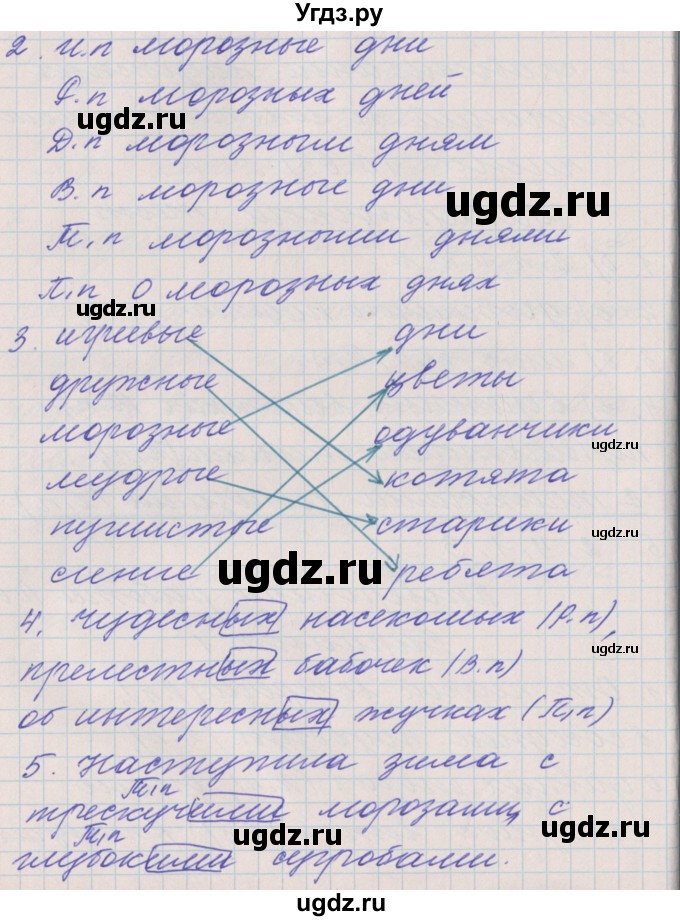 Угдз.ру
2. И.п морозные дни
Р.п морозных дней
ugdz.ru
Д.п морозным дням
В.п морозные дни
ugdz.ru
Т.п морозными днями
П.п о морозных днях
ugdz.ru
3. игривые дни
дружные цветы
морозные одуванчики
ugdz.ru
мудрые котята
пушистые старики
ugdz.ru
синие ребята
ugdz.ru
4. чудесных насекомых (Р.п),
ugdz.ru
прелестных бабочек (В.п)
об интересных жучках (П.п)
5. Наступила зима с
Т.п
трескучими морозами, с
ugdz.ru
Т.п
ugdz.ru
глубокими сугробами.
ugdz.ru